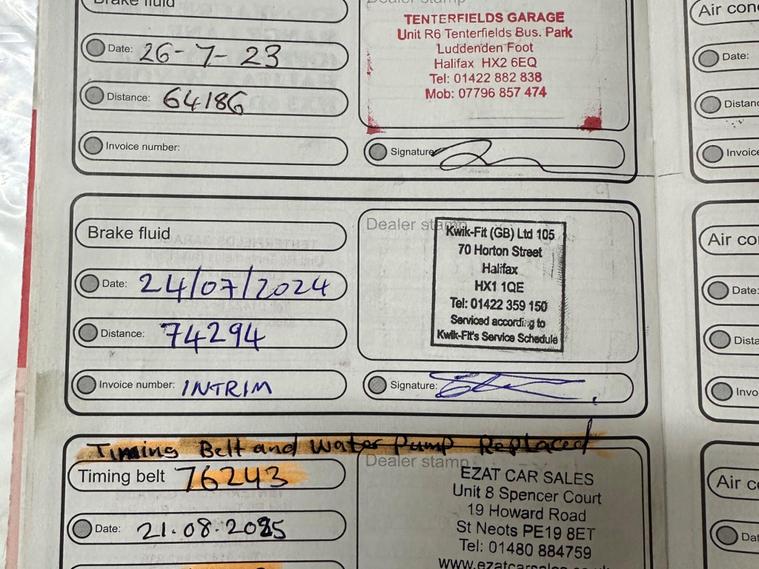 Brake fluid
Dealer stamp
TENTERFIELDS GARAGE
Unit R6 Tenterfields Bus. Park
Luddenden Foot
Halifax HX2 6EQ
Tel: 01422 882 838
Mob: 07796 857 474
Date: 26-7-23
Distance: 64186
Invoice number:
Signature:
Air con
Date:
Distanc
Invoice
Brake fluid
Dealer stamp
Kwik-Fit (GB) Ltd 105
70 Horton Street
Halifax
HX1 1QE
Tel: 01422 359 150
Serviced according to
Kwik-Fit's Service Schedule
Date: 24/07/2024
Distance: 74294
Invoice number: INTRIM
Signature:
Air co
Date:
Dista
Invo
Timing Belt and Water Pump Replaced
Timing belt 76243
Date: 21.08.2025
Dealer stamp
EZAT CAR SALES
Unit 8 Spencer Court
19 Howard Road
St Neots PE19 8ET
Tel: 01480 884759
www.ezatcarsales.co.uk
Air c
Dat